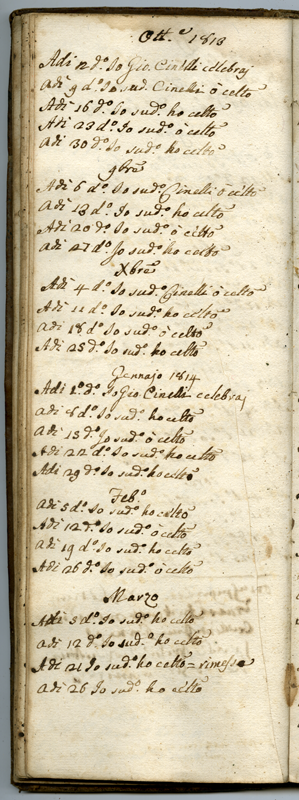 Ott.e 1813
Adi 2 d.o Io Gio. Cinelli celebraj
Adi 9 d.o Io sud. Cinelli ò celto
Adi 16 d.o Io sud.o ho celto
Adi 23 d.o Io sud.o ò celto
Adi 30 d.o Io sud.o ho celto
9bre
Adi 6 d.o Io sud.o Cinelli ò celto
Adi 13 d.o Io sud.o ho celto
Adi 20 d.o Io sud.o ò celto
Adi 27 d.o Io sud.o ho celto
Xbre
Adi 4 d.o Io sud.o Cinelli ò celto
Adi 11 d.o Io sud.o ho celto
Adi 18 d.o Io sud.o ò celto
Adi 25 d.o Io sud.o ho celto
Gennajo 1814
Adi 1.o d.o Io Gio Cinelli celebraj
Adi 8 d.o Io sud.o ho celto
Adi 15 d.o Io sud.o ò celto
Adi 22 d.o Io sud.o ho celto
Adi 29 d.o Io sud.o ho celto
Feb.o
Adi 5 d.o Io sud.o ho celto
Adi 12 d.o Io sud.o ò celto
Adi 19 d.o Io sud.o ho celto
Adi 26 d.o Io sud.o ò celto
Marzo
Adi 5 d.o Io sud.o ho celto
Adi 12 d.o Io sud.o ho celto
Adi 21 Io sud.o ho celto = rimessa
Adi 26 Io sud.o ho celto